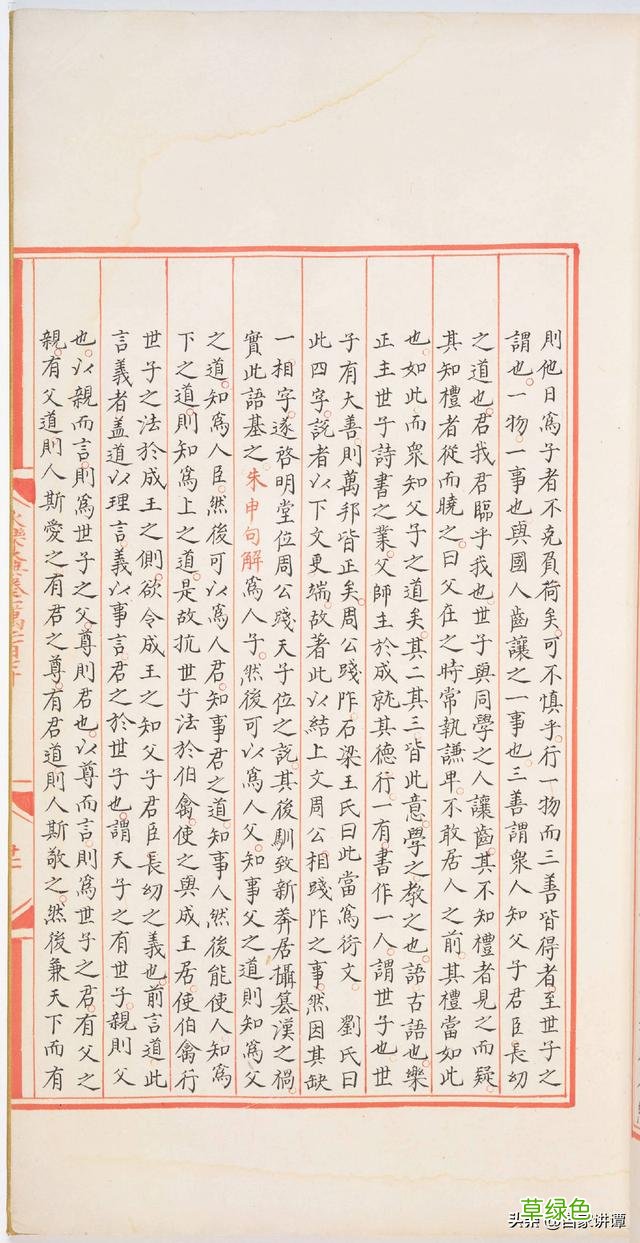 則他日爲子者不克負荷矣可不慎乎行一物而三善皆得者至世子之
謂也一物一事也與國人齒讓之一事也三善謂衆人知父子君臣長幼
之道也君我君臨乎我也世子與同學之人讓齒其不知禮者見之而疑
其知禮者從而曉之曰父在之時常執謙卑不敢居人之前其禮當如此
也如此而衆知父子之道矣其二其三皆此意學之教之也語古語也樂
正主世子詩書之業父師主於成就其德行一有書作一人謂世子也世
子有大善則萬邦皆正矣周公踐阼石梁王氏曰此當爲衍文 劉氏曰
此四字説者以下文更端故著此以結上文周公相踐阼之事然因其缺
一相字遂啓明堂位周公踐天子位之説其後馴致新莽居攝簒漢之禍
實此語基之朱申句解爲人子然後可以爲人父知事父之道則知爲父
之道知爲人臣然後可以爲人君知事君之道知事人然後能使人知爲
下之道則知爲上之道是故抗世子法於伯禽使之與成王居使伯禽行
世子之法於成王之側欲令成王之知父子君臣長幼之義也前言道此
言義者盖道以理言義以事言君之於世子也謂天子之有世子親則父
也以親而言則爲世子之父尊則君也以尊而言則爲世子之君有父之
親有父道則人斯愛之有君之尊有君道則人斯敬之然後兼天下而有
草绿色
头条 @百家讲谭